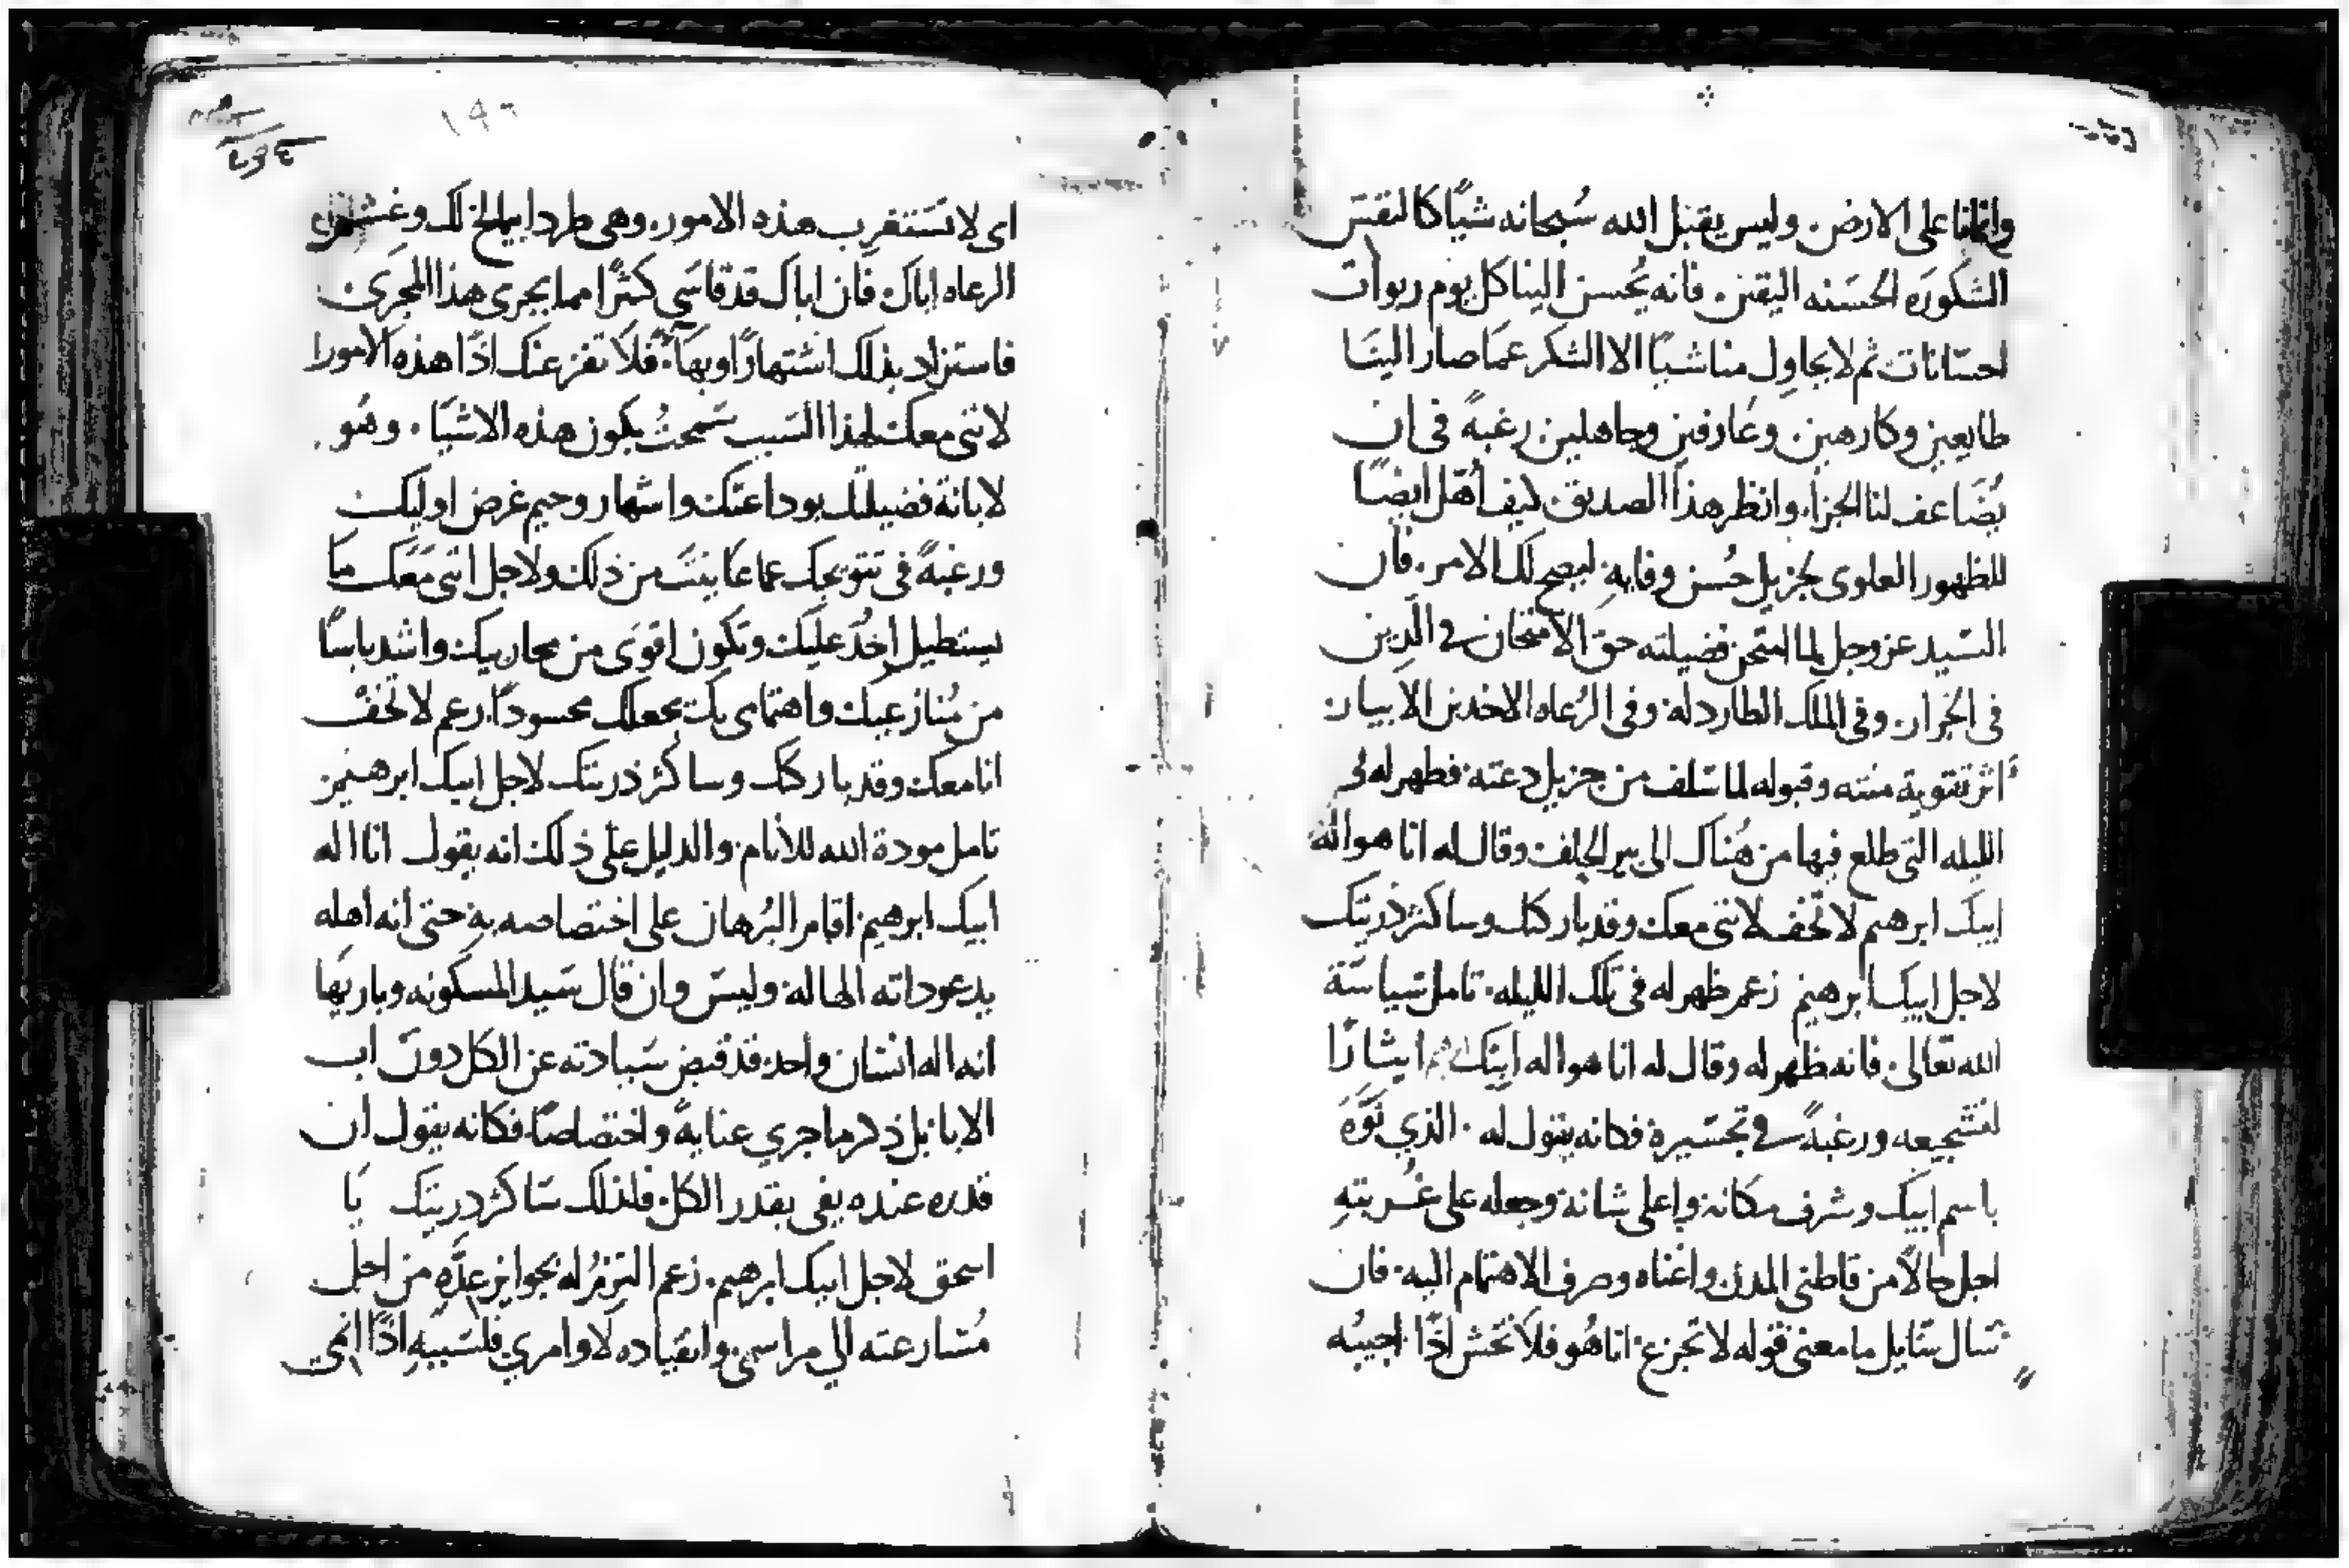 وانمانا على الارض. وليس يقبل الله سُبحانه شيًا كالنفس
الشكوره الحسَنه اليقين. فانه يُحسن الينا كل يوم ربوات
احسَانات ثم لا يحاول منا شيًا الا الشكر عمَا صار الينَا
طايعين وكارهين. وعَارفين وجاهلين رغبةً في ان
يُضَاعف لنا الجزاء. وانظر هذا الصديق كيف أهّل ايضًا
للظهور العلوى بجزيل حُسن وفايهِ ليصح لك الامر. فان
السَيد عز وجل لما امتحن فضيلته حق الامتحان في الذين
في الخرار. وفي الملك الطارد له وفي الرُعاه الاخدين الابيار
اثر تقوية منته وقبوله لما سَلف من جزيل دعته فظهر له في
الليله التي طلع فيها من هُناك الى بير الحلف وقال له انا هو اله
ابيك ابرهيم لا تخف لانني معك وقد باركتك وساكثر ذريتك
لاجل ابيك ابرهيم زعم ظهر له في تلك الليله. تامل سَياسَة
الله تعالى. فانه ظهر له وقال له انا هو اله ابيك ايثارًا
لتشجيعه ورغبةً في تجسَيره فكانه يقول له. الذي نَوَّه
باسم ابيك وشرف مكانه واعلى شانه وجعله على غُربتهِ
اجل حالاً من قاطنى المدن واغناه وصرف الاهتمام اليه. فان
سَال سَايل ما معنى قوله لا تجزع انا هُو فلا تخش اذًا اجيبُه
١٩٦
اى لا تسَتغرب هذه الامور. وهى طرد ابيمالخ لك وغشم
الرعاه اياك. فان اباك قد قاسَى كثرًا مما يجرى هذا المجرَى
فاستزاد بذلك اشتهارًا وبهَاءً فلا تفزعنك اذًا هذه الامور
لانني معك لهذا السَبب سَمحتُ بكون هذه الاشيَا. وهُو
لابانة فضيلتك بوداعتك واشهار وخيم غرض اوليك
ورغبةً في تتويجك عما عاينتَ من ذلك ولاجل انني معَك ما
يستطيل احدٌ عليك وتكون اقوَى من محاربيك واشد باسًا
من مُنازعيك واهتمامى بك يجعلك محسودًا. زعم لا تخف
انا معك وقد باركتك وساكثر ذريتك لاجل ابيك ابرهيم
تامل مودة الله للأنام. والدليل على ذلك انه يقول انا اله
ابيك ابرهيم اقام البُرهان على اختصاصه بهِ حتى انه اهله
يدعو ذاته الها له وليسَ وان قال سَيد المسكونه وباريهَا
انه اله انسَان واحد فقد قبض سَيادته عن الكل دون اب
الابا بل ذكر ما جري عنايةً واختصاصًا. فكانه يقول ان
قدره عنده يفى بقدر الكل. فلذلك سَاكثر ذريتك يَا
اسحق لاجل ابيك ابرهيم. زعم التزمُ له بجوايز عدّه من اجل
مُسَارعته الي مراسمي وانقياده لاوامري فلسَببهِ اذًا انمي